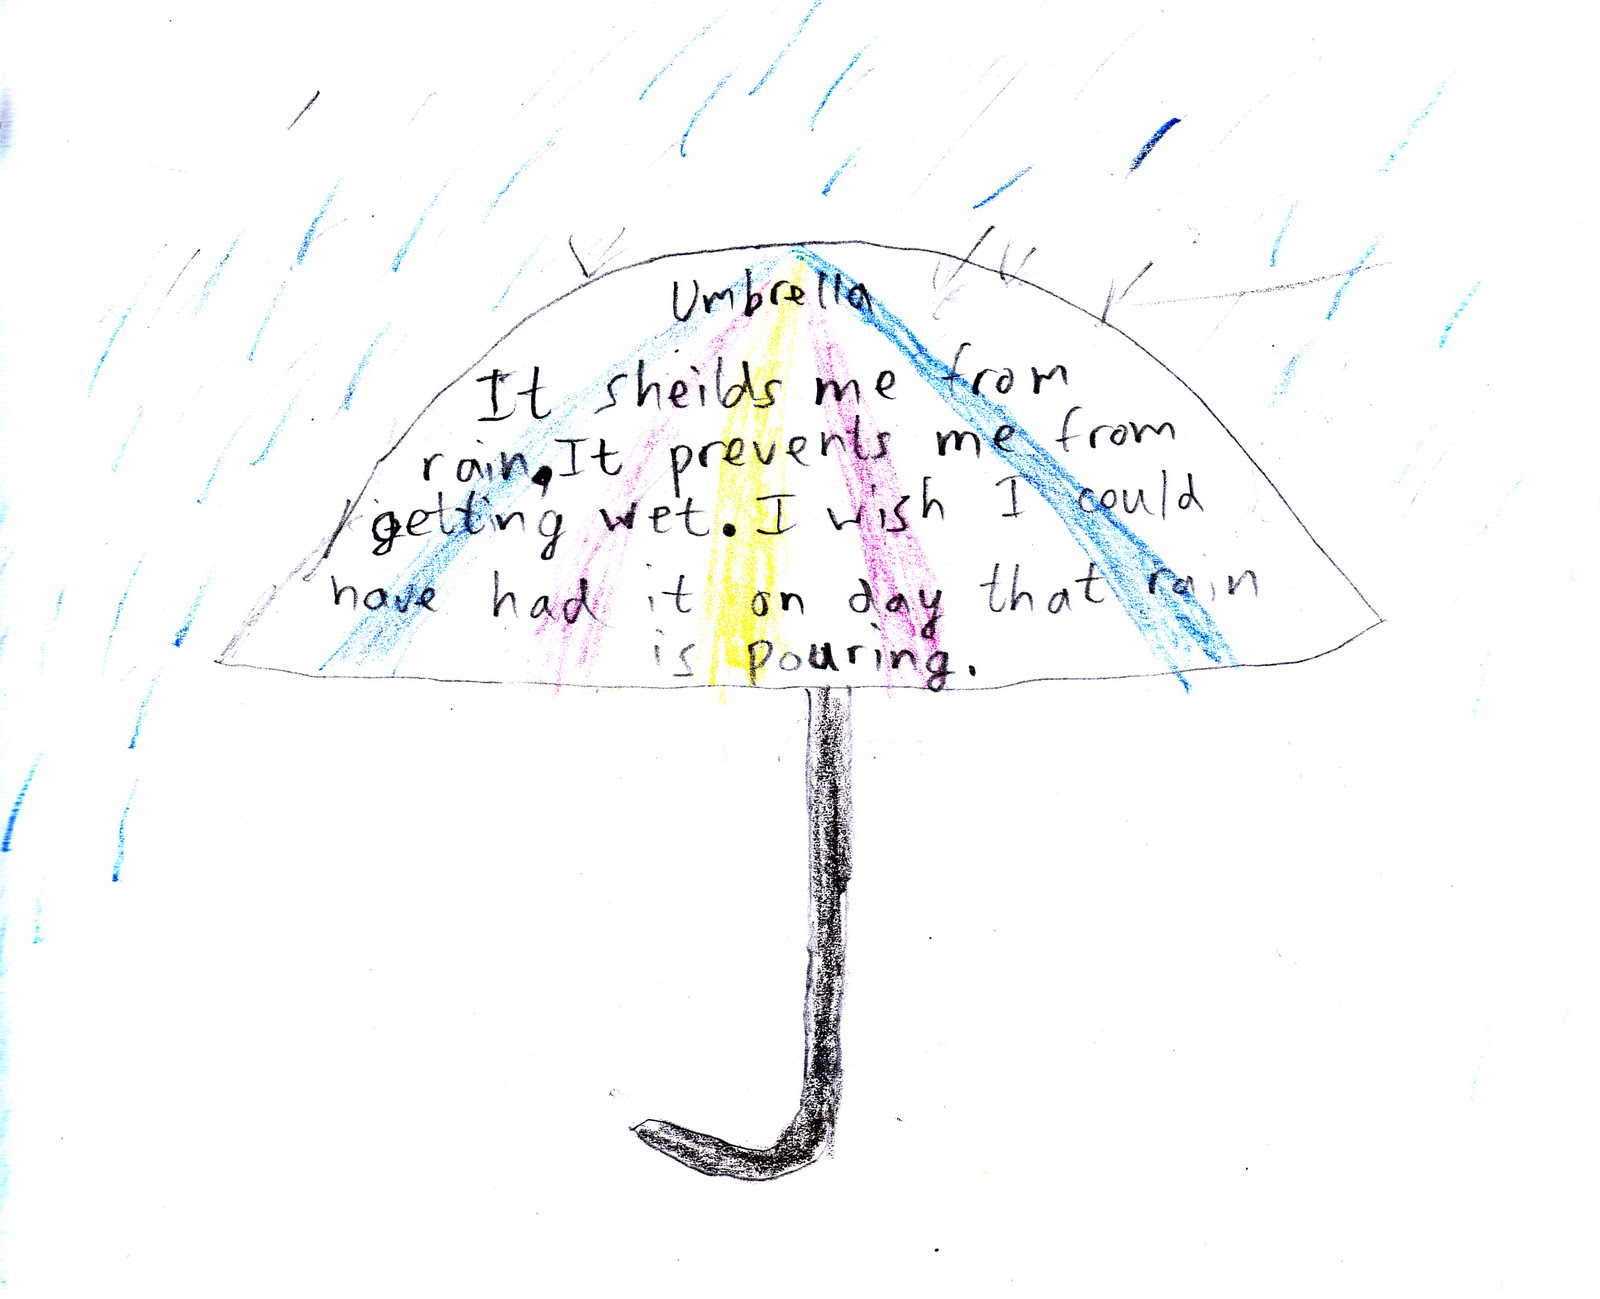 Umbrella
It sheilds me from
rain, It prevents me from
getting wet. I wish I could
have had it on day that rain
is pouring.